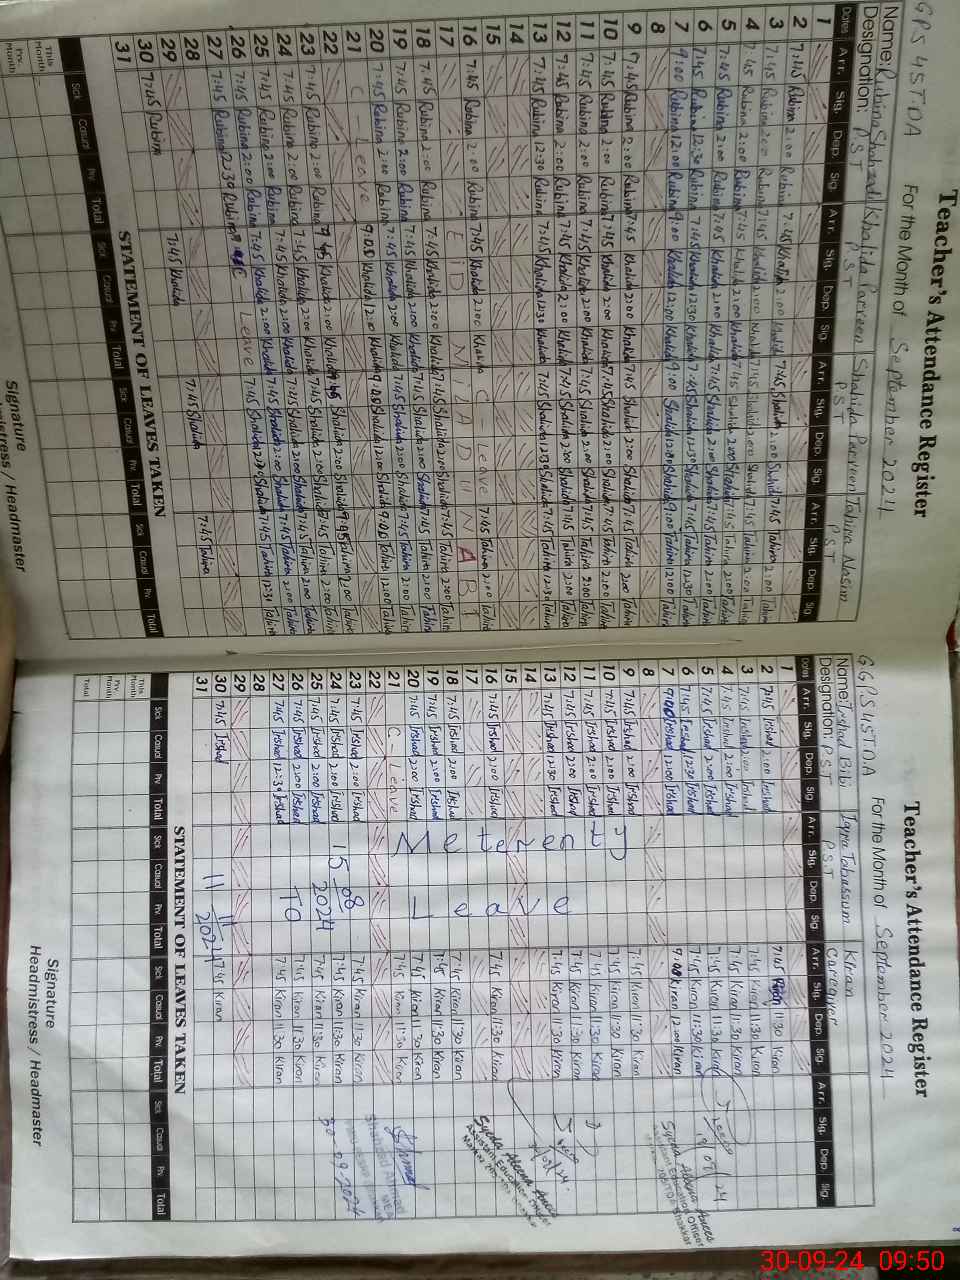 GPS 45TDA
Teacher's Attendance Register
For the Month of September 2024
Name: Rubina Shaheen Khalida Parveen Shahida Parveen Tahira Nasim
Designation: P.S.T P.S.T P.S.T P.S.T
Dates Arr. Sig. Dep. Sig. Arr. Sig. Dep. Sig. Arr. Sig. Dep. Sig. Arr. Sig. Dep. Sig.
1
2 7:45 Rubina 2:00 Rubina 7:45 Khalida 2:00 Khalida 7:45 Shahida 2:00 Shahida 7:45 Tahira 2:00 Tahira
3 7:45 Rubina 2:00 Rubina 7:45 Khalida 2:00 Khalida 7:45 Shalida 2:00 Shalida 7:45 Tahira 2:00 Tahira
4 7:45 Rubina 2:00 Rubina 7:45 Khalida 2:00 Khalida 7:45 Shalida 2:00 Shalida 7:45 Tahira 2:00 Tahira
5 7:45 Rubina 2:00 Rubina 7:45 Khalida 2:00 Khalida 7:45 Shalida 2:00 Shalida 7:45 Tahira 2:00 Tahira
6 7:45 Rubina 12:30 Rubina 7:45 Khalida 12:30 Khalida 7:45 Shalida 12:30 Shalida 7:45 Tahira 12:30 Tahira
7 9:00 Rubina 12:00 Rubina 9:00 Khalida 12:00 Khalida 9:00 Shalida 12:00 Shalida 9:00 Tahira 12:00 Tahira
8
9 7:45 Rubina 2:00 Rubina 7:45 Khalida 2:00 Khalida 7:45 Shalida 2:00 Shalida 7:45 Tahira 2:00 Tahira
10 7:45 Rubina 2:00 Rubina 7:45 Khalida 2:00 Khalida 7:45 Shalida 2:00 Shalida 7:45 Tahira 2:00 Tahira
11 7:45 Rubina 2:00 Rubina 7:45 Khalida 2:00 Khalida 7:45 Shalida 2:00 Shalida 7:45 Tahira 2:00 Tahira
12 7:45 Rubina 2:00 Rubina 7:45 Khalida 2:00 Khalida 7:45 Shalida 2:00 Shalida 7:45 Tahira 2:00 Tahira
13 7:45 Rubina 12:30 Rubina 7:45 Khalida 12:30 Khalida 7:45 Shalida 12:30 Shalida 7:45 Tahira 12:30 Tahira
14
15
16 7:45 Rubina 2:00 Rubina 7:45 Khalida 2:00 Khalida C - Leave 7:45 Tahira 2:00 Tahira
17 EID MILAD UN NABI
18 7:45 Rubina 2:00 Rubina 7:45 Khalida 2:00 Khalida 7:45 Shalida 2:00 Shalida 7:45 Tahira 2:00 Tahira
19 7:45 Rubina 2:00 Rubina 7:45 Khalida 2:00 Khalida 7:45 Shalida 2:00 Shalida 7:45 Tahira 2:00 Tahira
20 7:45 Rubina 2:00 Rubina 7:45 Khalida 2:00 Khalida 7:45 Shalida 2:00 Shalida 7:45 Tahira 2:00 Tahira
21 C Leave 9:00 Khalida 12:00 Khalida 9:00 Shalida 12:00 Shalida 9:00 Tahira 12:00 Tahira
22
23 7:45 Rubina 2:00 Rubina 7:45 Khalida 2:00 Khalida 7:45 Shalida 2:00 Shalida 7:45 Tahira 2:00 Tahira
24 7:45 Rubina 2:00 Rubina 7:45 Khalida 2:00 Khalida 7:45 Shalida 2:00 Shalida 7:45 Tahira 2:00 Tahira
25 7:45 Rubina 2:00 Rubina 7:45 Khalida 2:00 Khalida 7:45 Shalida 2:00 Shalida 7:45 Tahira 2:00 Tahira
26 7:45 Rubina 2:00 Rubina 7:45 Khalida 2:00 Khalida 7:45 Shalida 2:00 Shalida 7:45 Tahira 2:00 Tahira
27 7:45 Rubina 12:30 Rubina C Leave 7:45 Shalida 12:30 Shalida 7:45 Tahira 12:30 Tahira
28
29
30 7:45 Rubina 7:45 Khalida 7:45 Shalida 7:45 Tahira
31
STATEMENT OF LEAVES TAKEN
Sick Casual Prv. Total Sick Casual Prv. Total Sick Casual Prv. Total Sick Casual Prv. Total
This Month
Prv. Month
Signature
Headmistress / Headmaster
GGPS 45TDA
Teacher's Attendance Register
For the Month of September 2024
Name: Irshad Bibi Iqra Tabassum Kiran
Designation: P.S.T P.S.T Caregiver
Dates Arr. Sig. Dep. Sig. Arr. Sig. Dep. Sig. Arr. Sig. Dep. Sig. Arr. Sig. Dep. Sig.
1
2 7:45 Irshad 2:00 Irshad 7:45 Kiran 11:30 Kiran
3 7:45 Irshad 2:00 Irshad 7:45 Kiran 11:30 Kiran
4 7:45 Irshad 2:00 Irshad 7:45 Kiran 11:30 Kiran
5 7:45 Irshad 2:00 Irshad 7:45 Kiran 11:30 Kiran
6 7:45 Irshad 12:30 Irshad 7:45 Kiran 11:30 Kiran
7 9:00 Irshad 12:00 Irshad 9:00 Kiran 12:00 Kiran
8
9 7:45 Irshad 2:00 Irshad 7:45 Kiran 11:30 Kiran
10 7:45 Irshad 2:00 Irshad 7:45 Kiran 11:30 Kiran
11 7:45 Irshad 2:00 Irshad 7:45 Kiran 11:30 Kiran
12 7:45 Irshad 2:00 Irshad 7:45 Kiran 11:30 Kiran
13 7:45 Irshad 12:30 Irshad 7:45 Kiran 11:30 Kiran
14
15
16 7:45 Irshad 2:00 Irshad 7:45 Kiran 11:30 Kiran
17
18 7:45 Irshad 2:00 Irshad 7:45 Kiran 11:30 Kiran
19 7:45 Irshad 2:00 Irshad 7:45 Kiran 11:30 Kiran
20 7:45 Irshad 2:00 Irshad 7:45 Kiran 11:30 Kiran
21 C - Leave 7:45 Kiran 11:30 Kiran
22
23 7:45 Irshad 2:00 Irshad 7:45 Kiran 11:30 Kiran
24 7:45 Irshad 2:00 Irshad 7:45 Kiran 11:30 Kiran
25 7:45 Irshad 2:00 Irshad 7:45 Kiran 11:30 Kiran
26 7:45 Irshad 2:00 Irshad 7:45 Kiran 11:30 Kiran
27 7:45 Irshad 12:30 Irshad 7:45 Kiran 11:30 Kiran
28
29
30 7:45 Irshad 7:45 Kiran
31
Leave
15 08 2024
TO
11 11 2024
Syeda Aleena
Assistant Education Officer
Shahzad Ahmad
30-09-2024
STATEMENT OF LEAVES TAKEN
Sick Casual Prv. Total Sick Casual Prv. Total Sick Casual Prv. Total Sick Casual Prv. Total
This Month
Prv. Month
Total
Signature
Headmistress / Headmaster
30-09-24 09:50